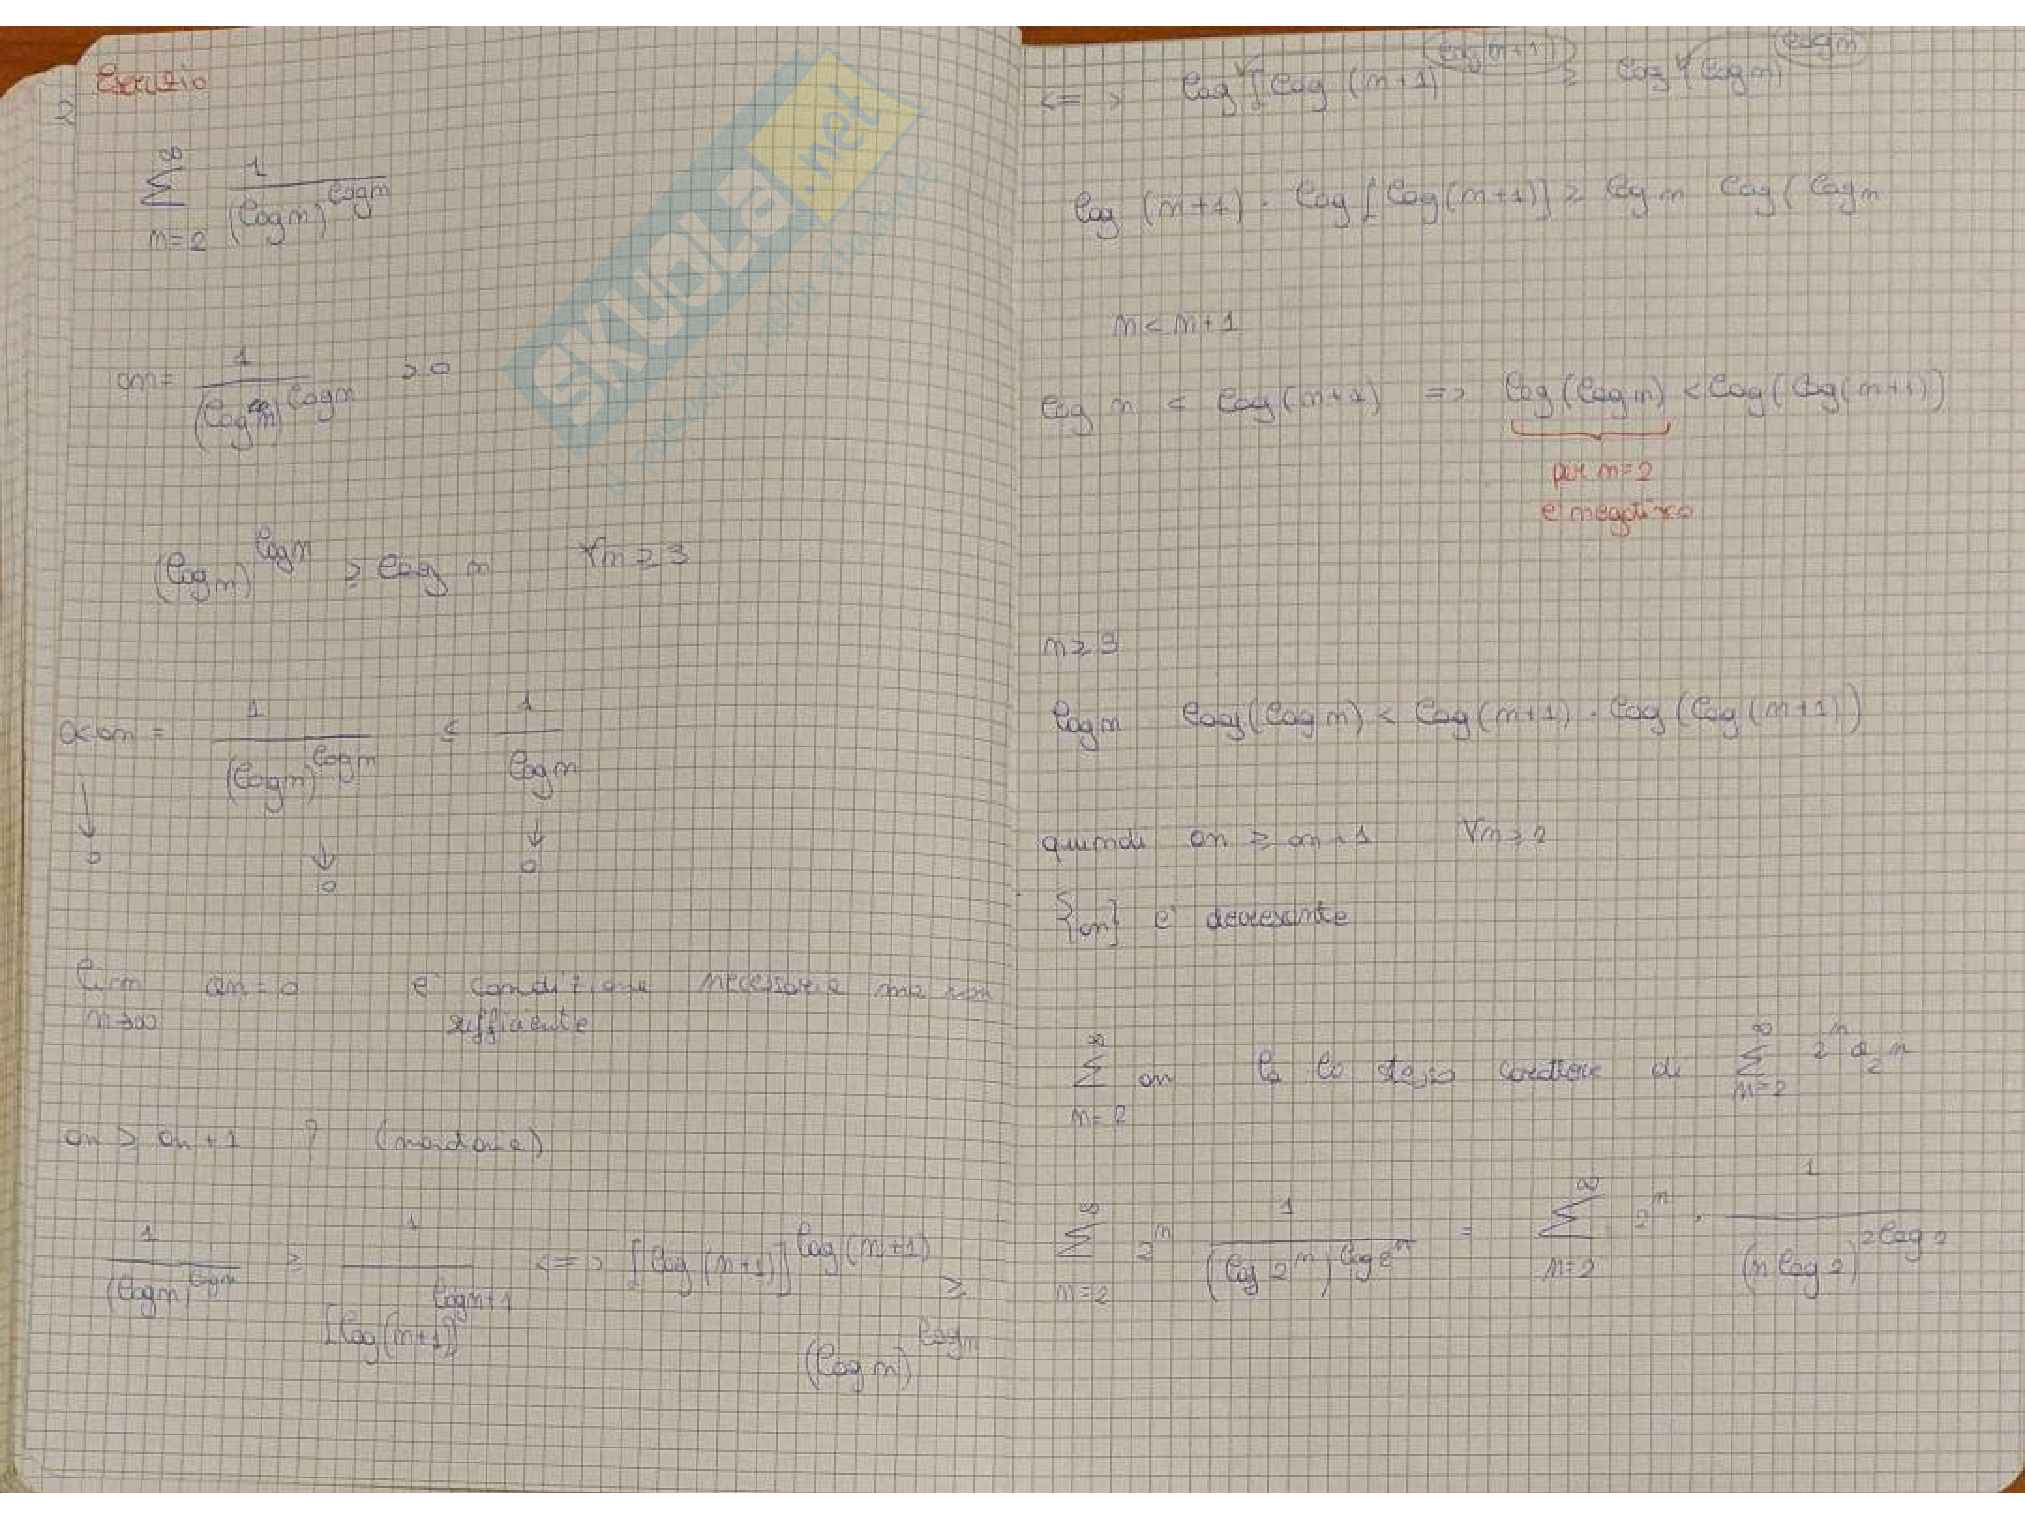 Esercizio
2
∞
Σ 1 / (log n)^log n
n=2
an = 1 / (log n)^log n > 0
(log n)^log n ≥ log n ∀n ≥ 3
0 < an = 1 / (log n)^log n ≤ 1 / log n
↓ ↓ ↓
0 0 0
lim an = 0 e' condizione necessaria ma non
n→∞ sufficiente
an ≥ an+1 ?
1 / (log n)^log n ≥ 1 / [log(n+1)]^log n+1 <=> [log (n+1)]^log(n+1) ≥
(log n)^log n
<=> log [log (n+1)^log(n+1) ≥ log (log n)^log n
log (n+1) · log [log(n+1)] ≥ log n log (log n
n < n+1
log n < log(n+1) => log(log n) < log(log(n+1))
per n=2
e' negativo
n ≥ 3
log n log(log n) < log(n+1) · log(log(n+1))
quindi an ≥ an+1 ∀n ≥ 2
{an} e' decrescente
∞ ∞
Σ an ha lo stesso carattere di Σ 2^n a_2^n
n=2 n=2
∞ ∞
Σ 2^n 1 / (log 2^n)^log 2^n = Σ 2^n · 1 / (n log 2)^2 log 2
n=2 n=2
SKUOLA.net